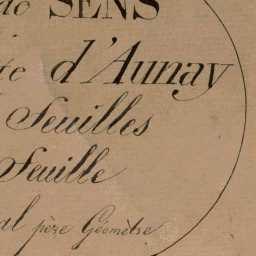 SENS
d'Aunay
Feuilles
Feuille
al père Géomètre